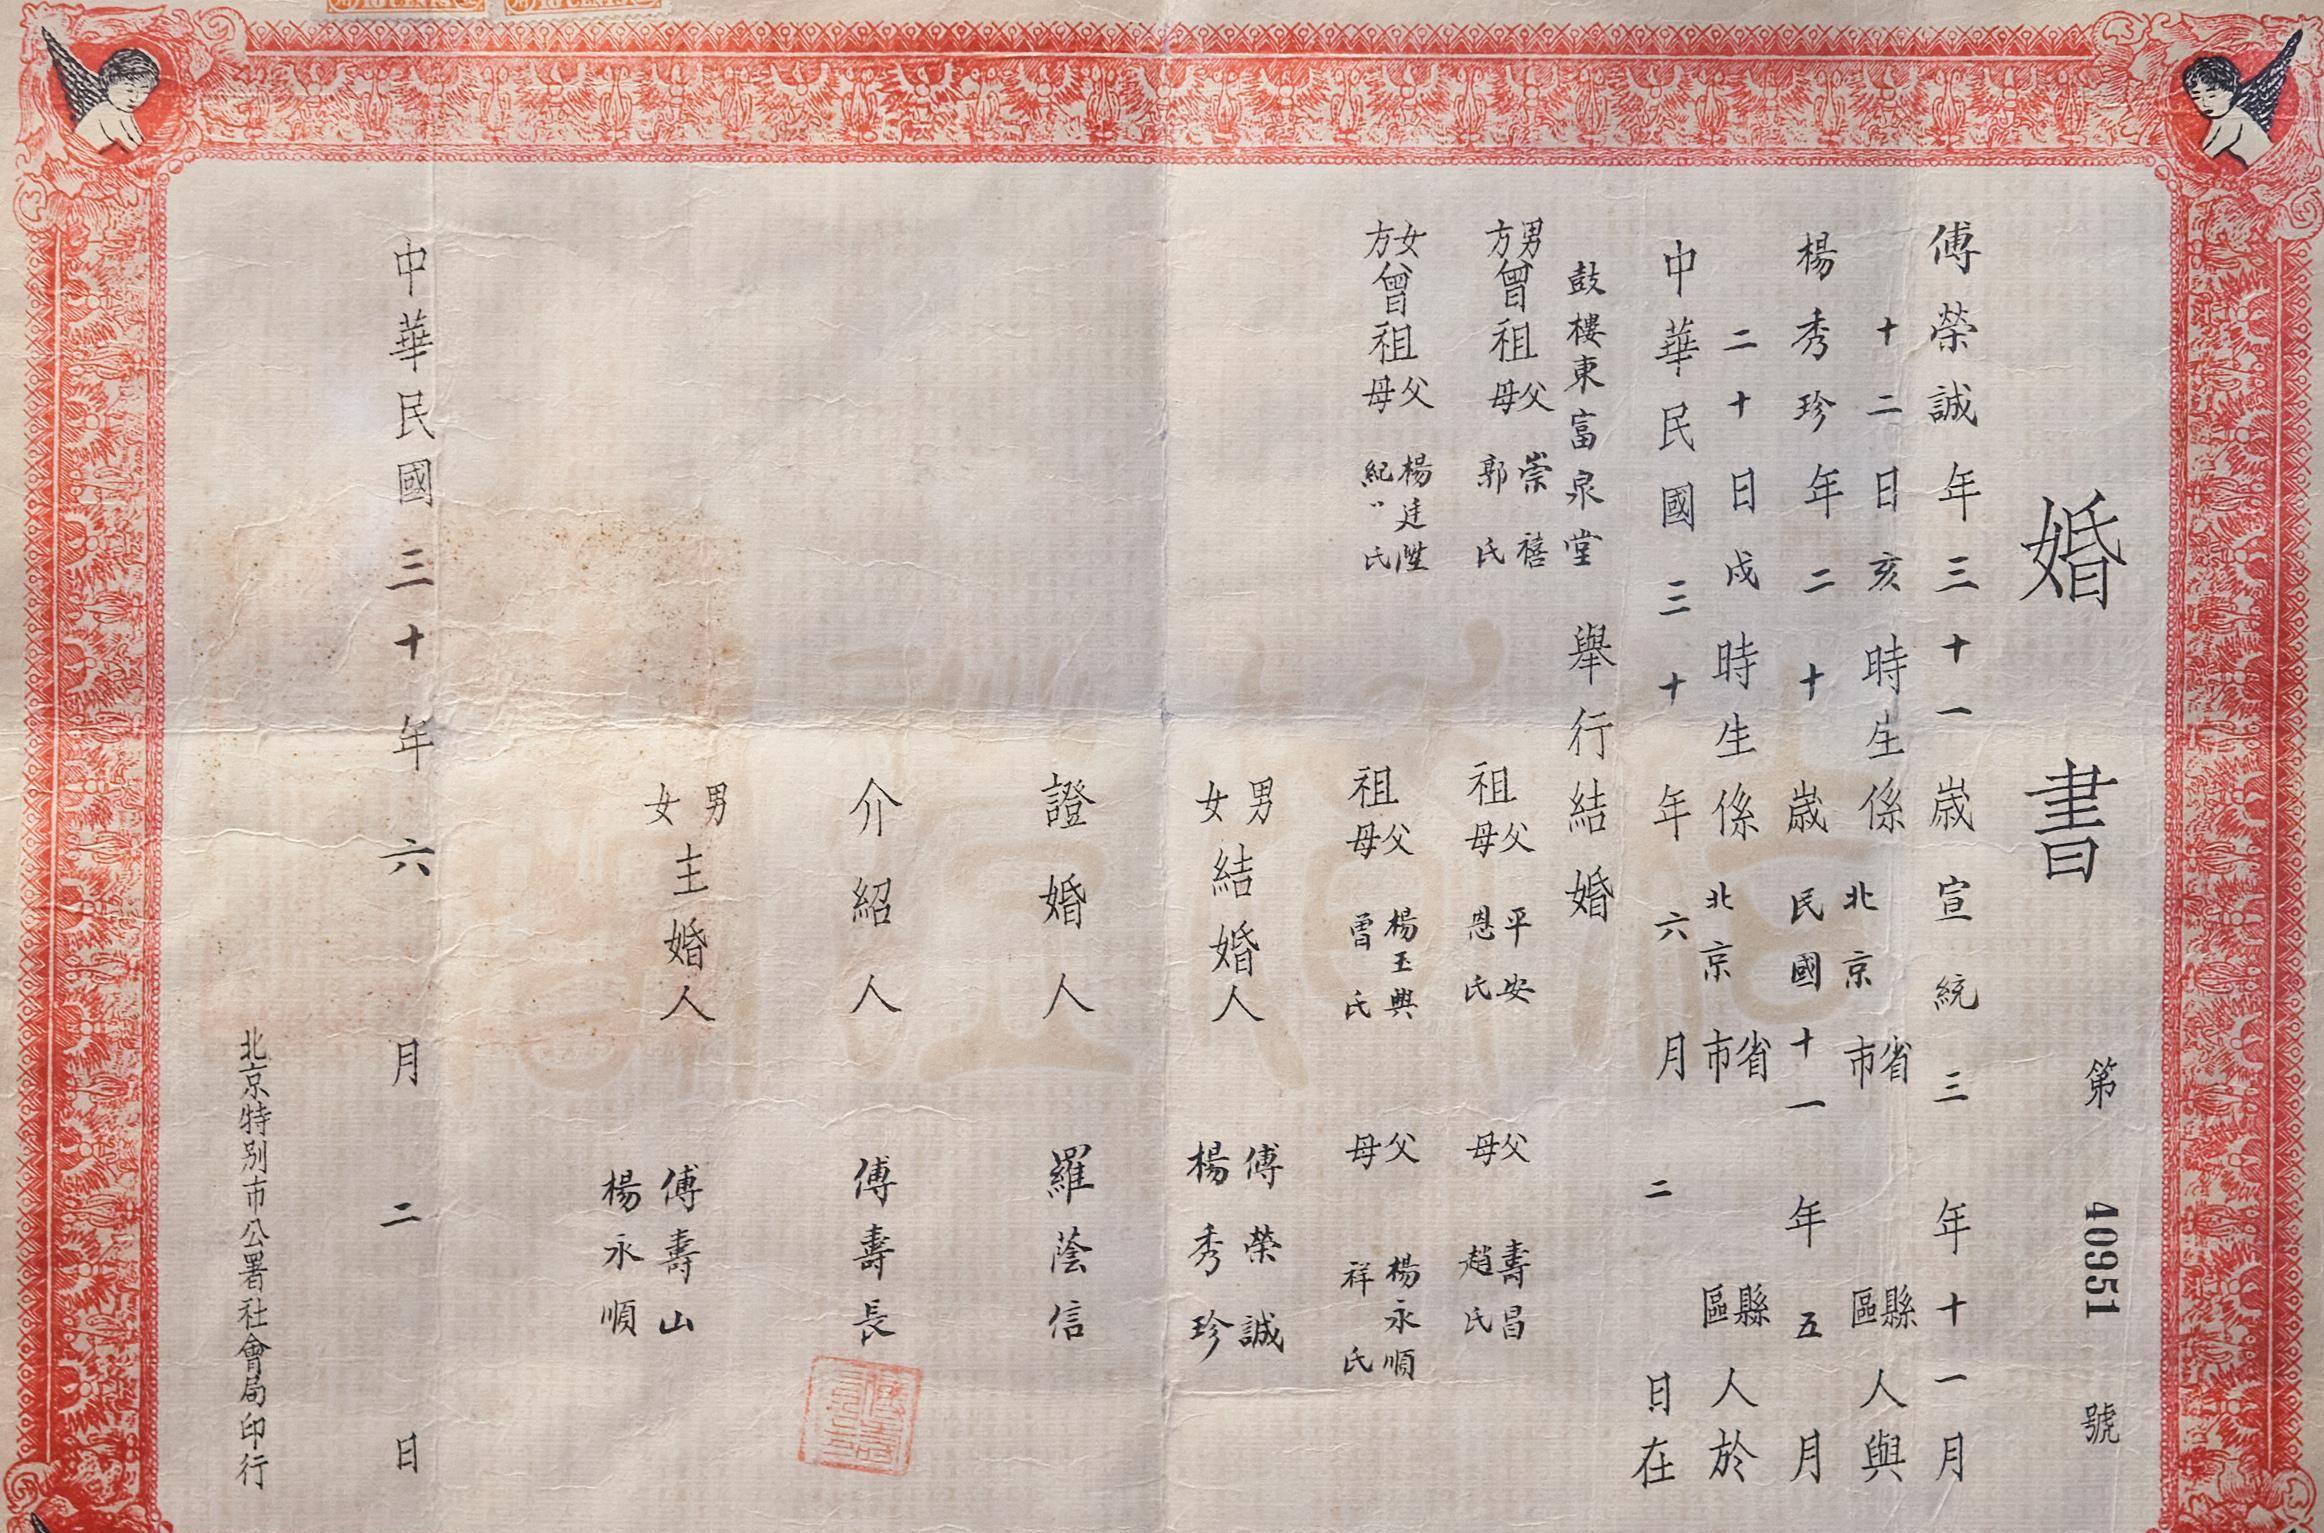 婚書
第40951號
傅榮誠年三十一歲宣統三年十一月
十二日亥時生係北京省市縣區人與
楊秀珍年二十歲民國十一年五月
二十日戌時生係北京省市縣區人於
中華民國三十年六月二日在
鼓樓東富泉堂舉行結婚
男方曾祖父母崇禧郭氏祖父母平安恩氏父母壽昌趙氏
女方曾祖父母楊廷陞紀氏祖父母楊玉興曹氏父母楊永順祥氏
男女結婚人傅榮誠楊秀珍
證婚人羅蔭信
介紹人傅壽長
男女主婚人傅壽山楊永順
中華民國三十年六月二日
北京特別市公署社會局印行